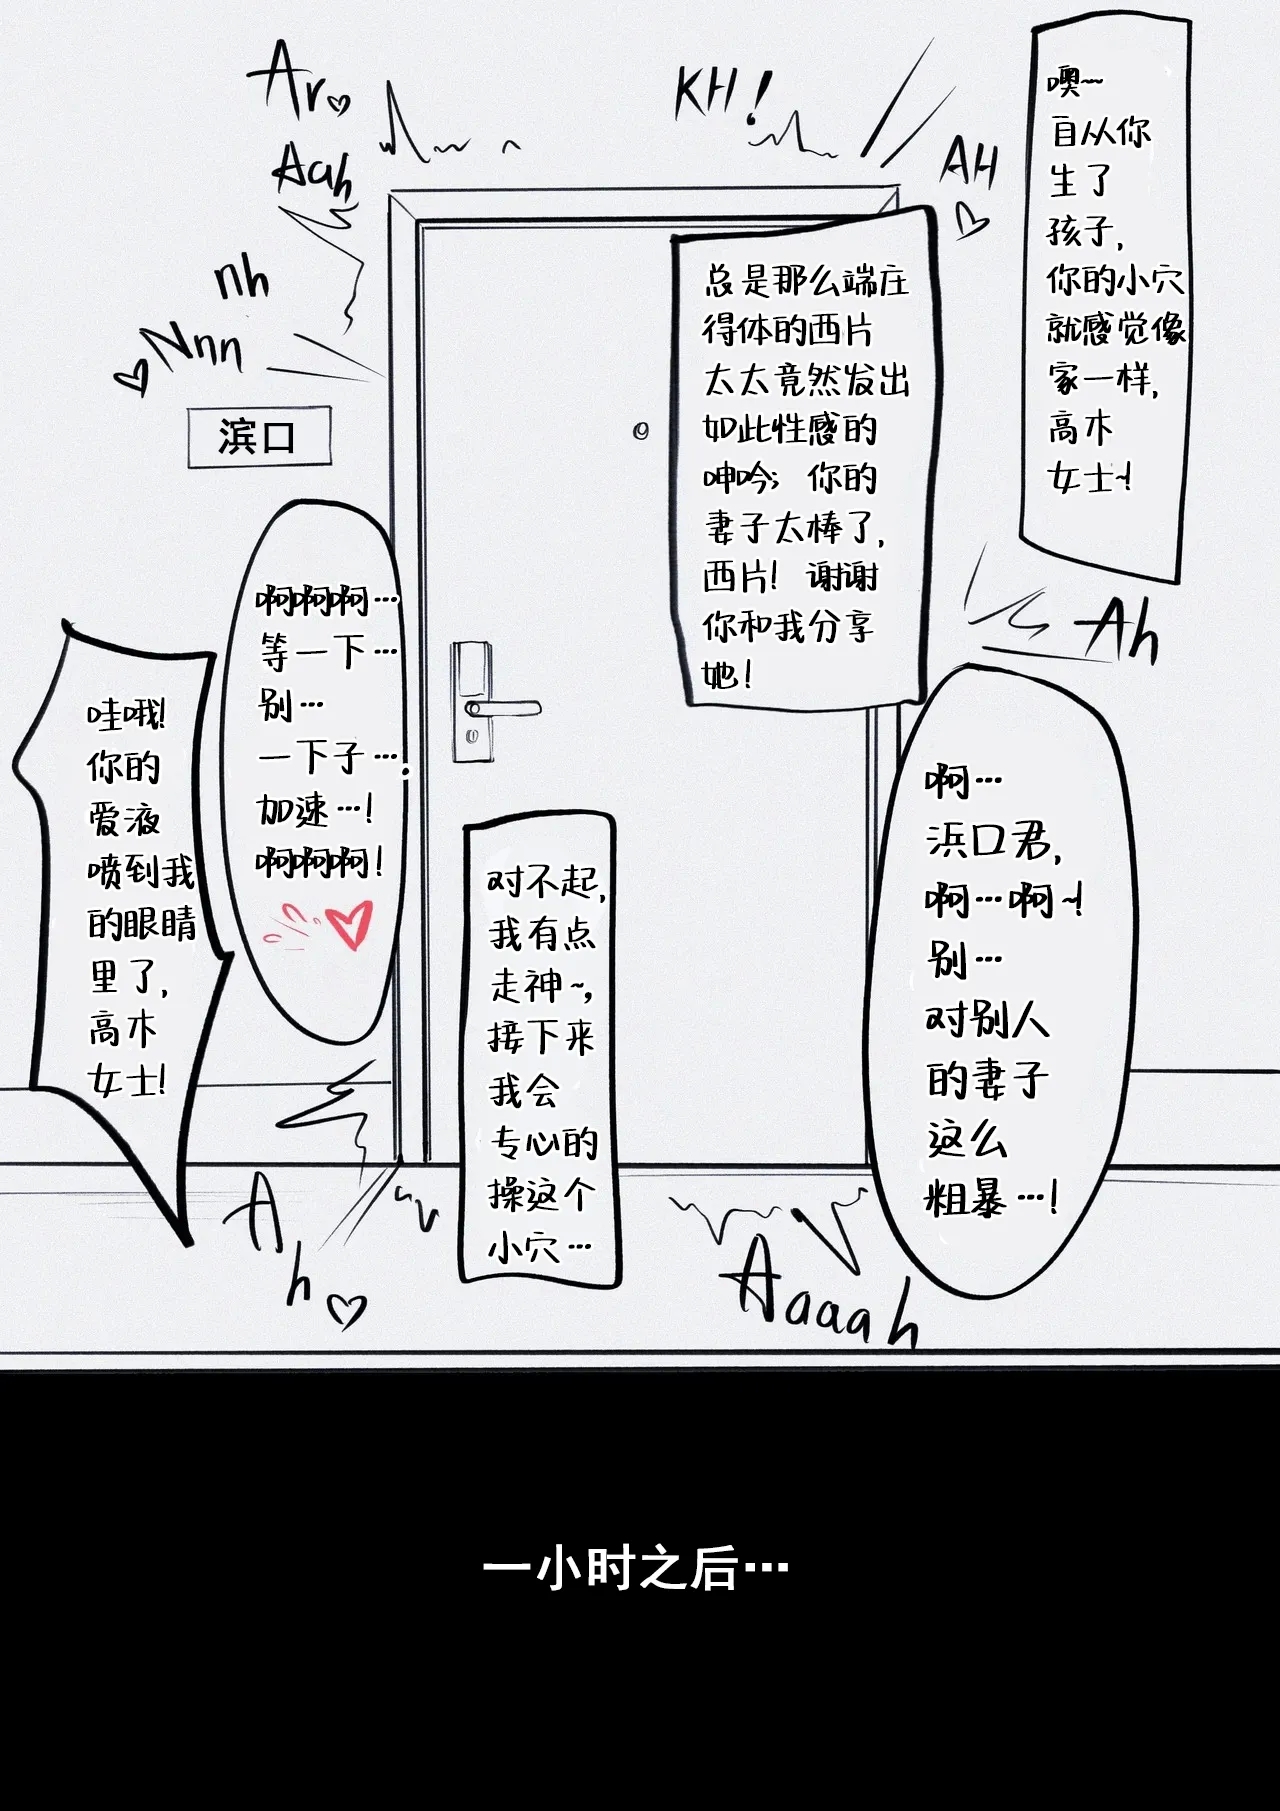 Ar
Aah
nh
Nnn
KH!
AH
噢~
自从你
生了
孩子,
你的小穴
就感觉像
家一样,
高木
女士~!
总是那么端庄
得体的西片
太太竟然发出
如此性感的
呻吟; 你的
妻子太棒了,
西片! 谢谢
你和我分享
她!
滨口
Ah
啊啊啊…
等一下…
别…
一下子…
加速…!
啊啊啊!
哇哦!
你的
爱液
喷到我
的眼睛
里了,
高木
女士!
啊…
浜口君,
啊…啊~!
别…
对别人
的妻子
这么
粗暴…!
对不起,
我有点
走神~,
接下来
我会
专心的
操这个
小穴…
Ah
Aaaah
一小时之后…